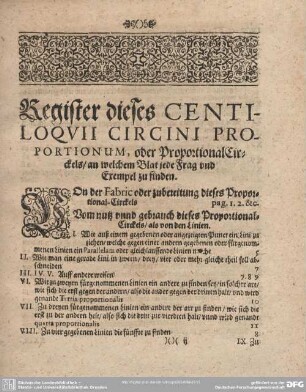 Register dieses CENTI-
LOQVII CIRCINI PRO-
PORTIONUM, oder ProportionalCir-
ckels/ an welchem Blat jede Frag vnd
Exempel zu finden.
VOn der Fabric oder zubereitung dieses Propor-
tional-Circkels pag. 1. 2. &c.
Vom nutz vnnd gebrauch dieses Proportional-
Circkels/ als von den Linien.
I. Wie auß einem gegebenen oder angezeigten Puncten ein Lini zu
ziehen/ welche gegen einer andern gegebenen oder fürgenom-
menen linien ein Parallelam oder gleichlauffende linien mache
II. Wie man eine gerade lini in zween/ drey/ vier oder mehr gleiche theil soll ab-
schneiden. 7
III. IV. V. Auff andere weisen 7. 8 9
VI. Wie zu zweyen fürgenommenen Linien ein andere zu finden sey/ in solcher art/
wie sich die erst gegen der andern/ also die ander gegen der dritten halt/ und wird
genandt Tertia proportionalis 10
VII. Zu dreyen fürgenommenen linien ein andere der art zu finden/ wie sich die
erst zu der andern helt/ also sich die dritt zur vierdten halt/ vnnd wird genandt
quarta proportionalis 11
VIII. Zu vier gegebenen linien die fünffte zu finden 8
)( )( ij IX. Zu